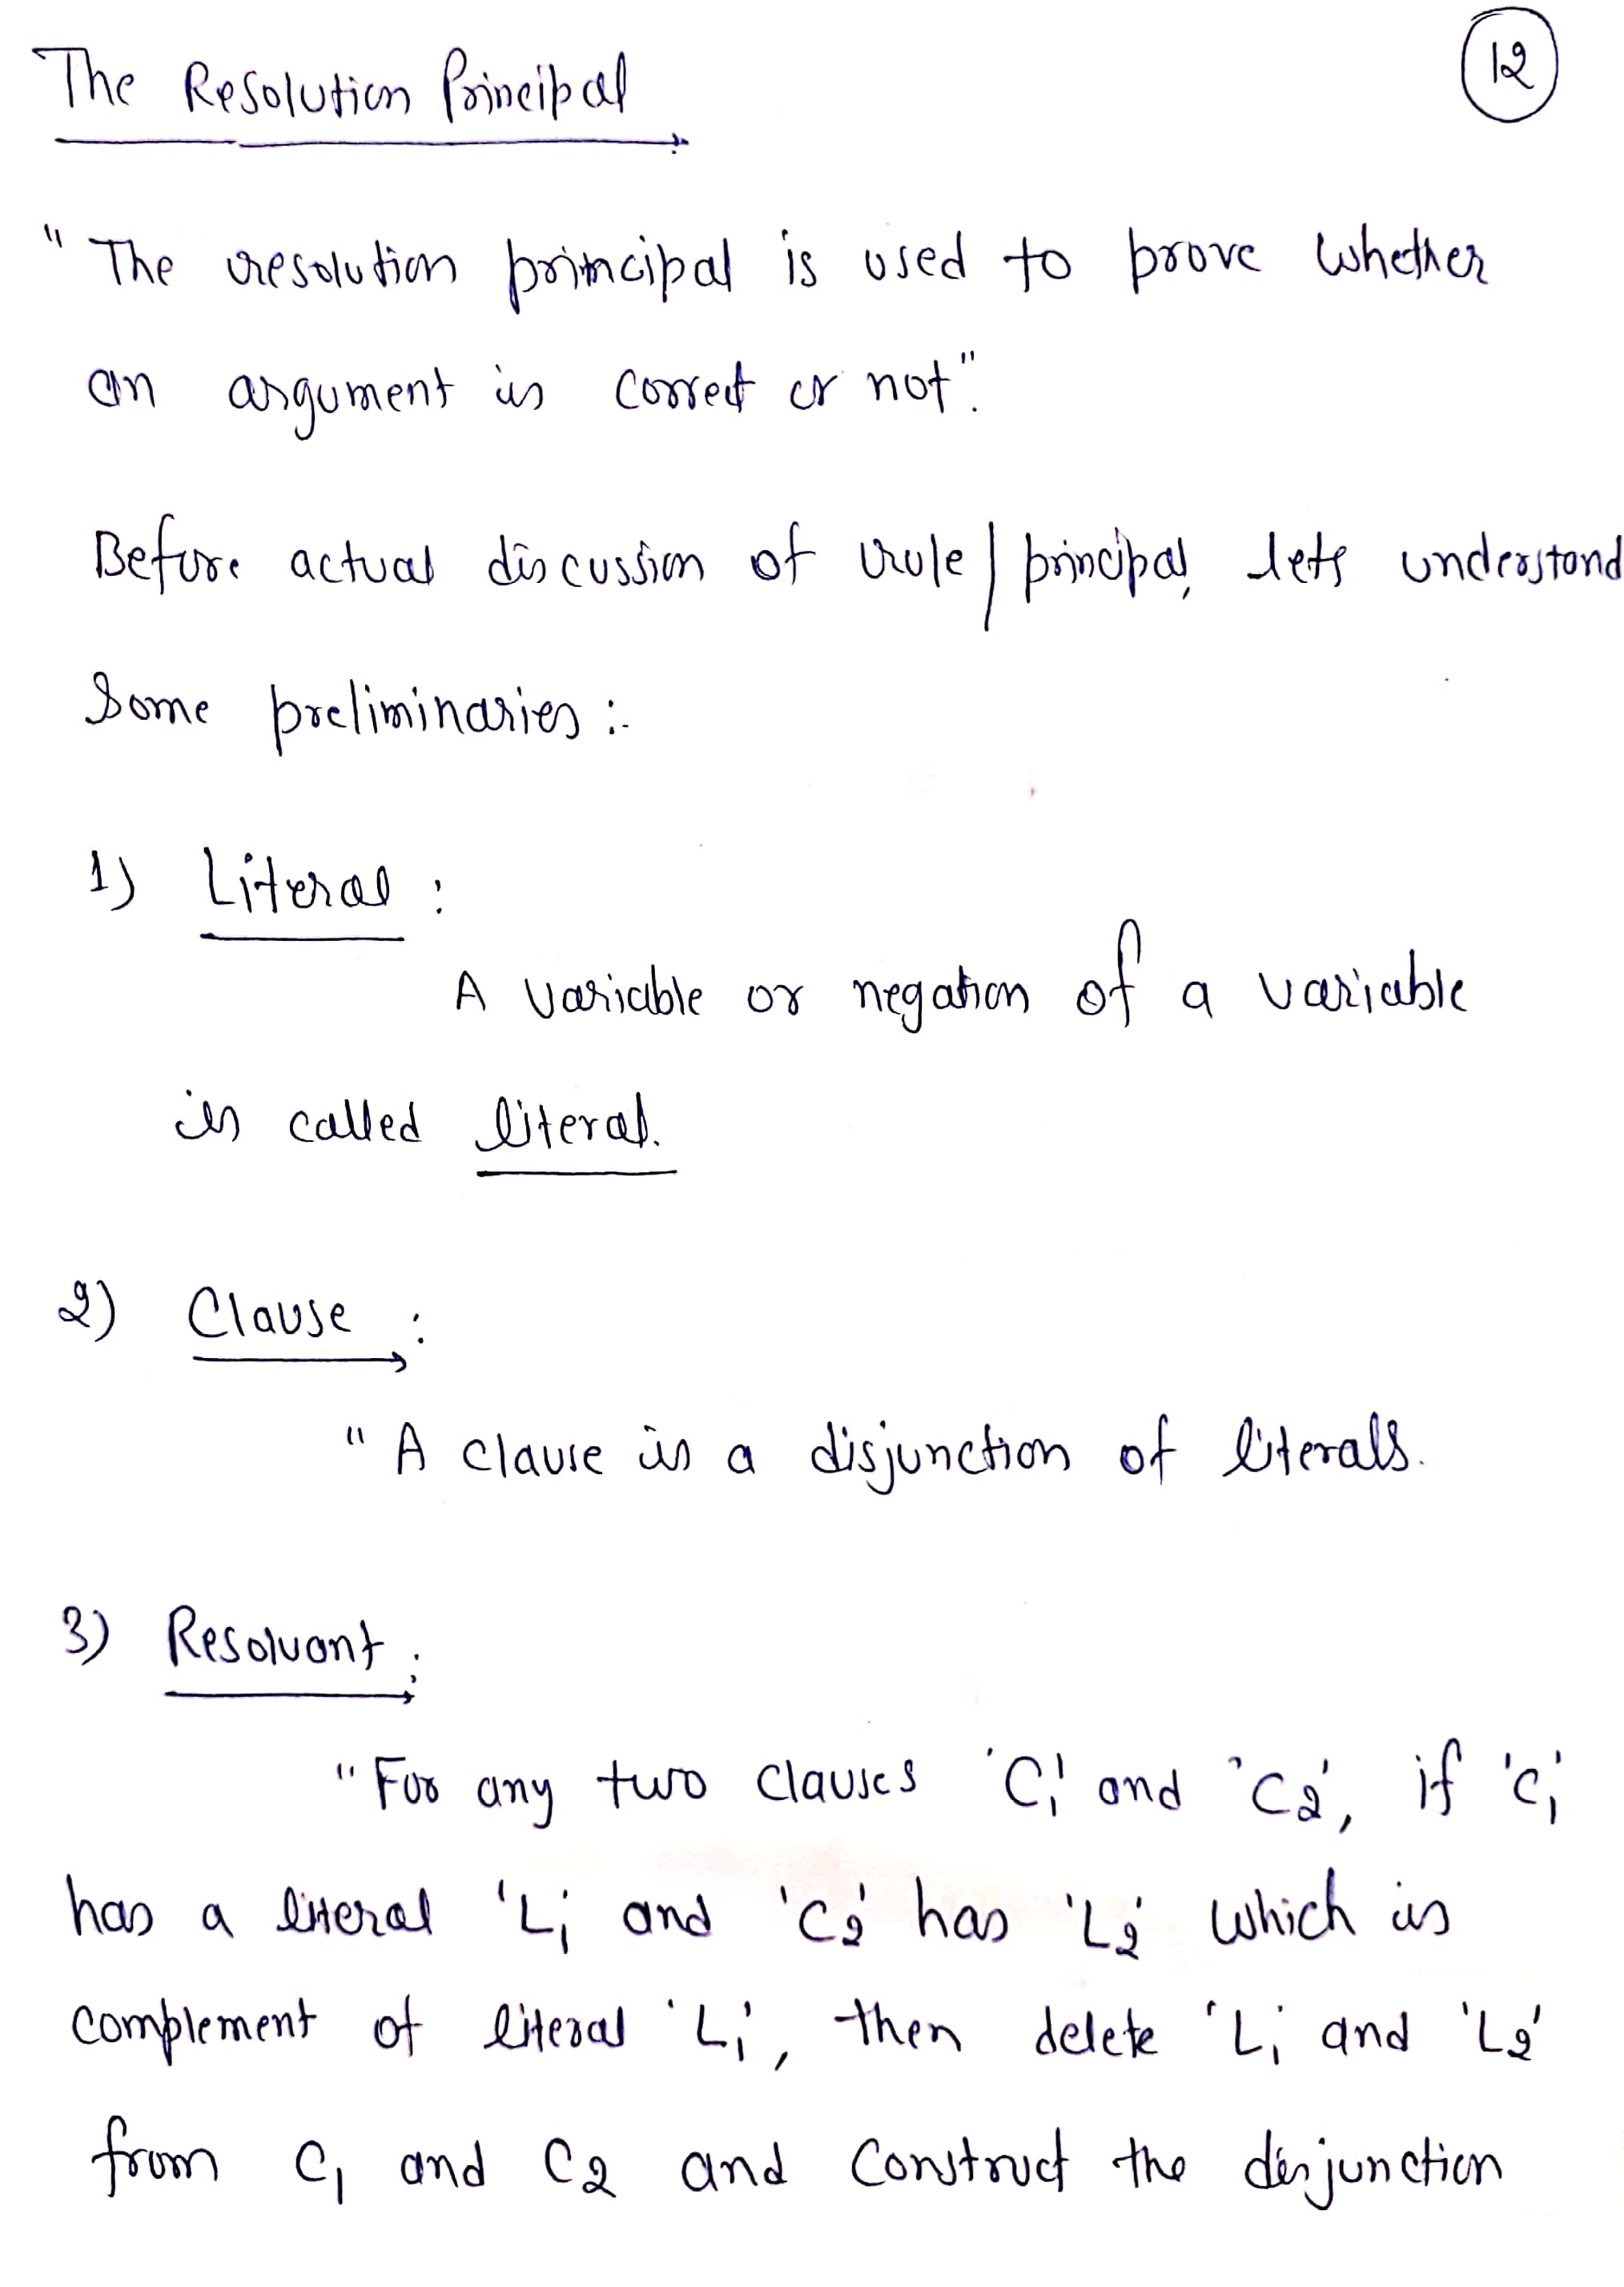 The Resolution Principal
12
"The resolution principal is used to prove whether
an argument is correct or not".
Before actual discussion of rule/principal, lets understand
Some preliminaries :-
1) Literal :
A variable or negation of a variable
is called literal.
2) Clause :
"A clause is a disjunction of literals.
3) Resolvant :
"For any two clauses 'C₁' and 'C₂', if 'C₁'
has a literal 'L₁' and 'C₂' has 'L₂' which is
complement of literal 'L₁', then delete 'L₁' and 'L₂'
from C₁ and C₂ and construct the disjunction